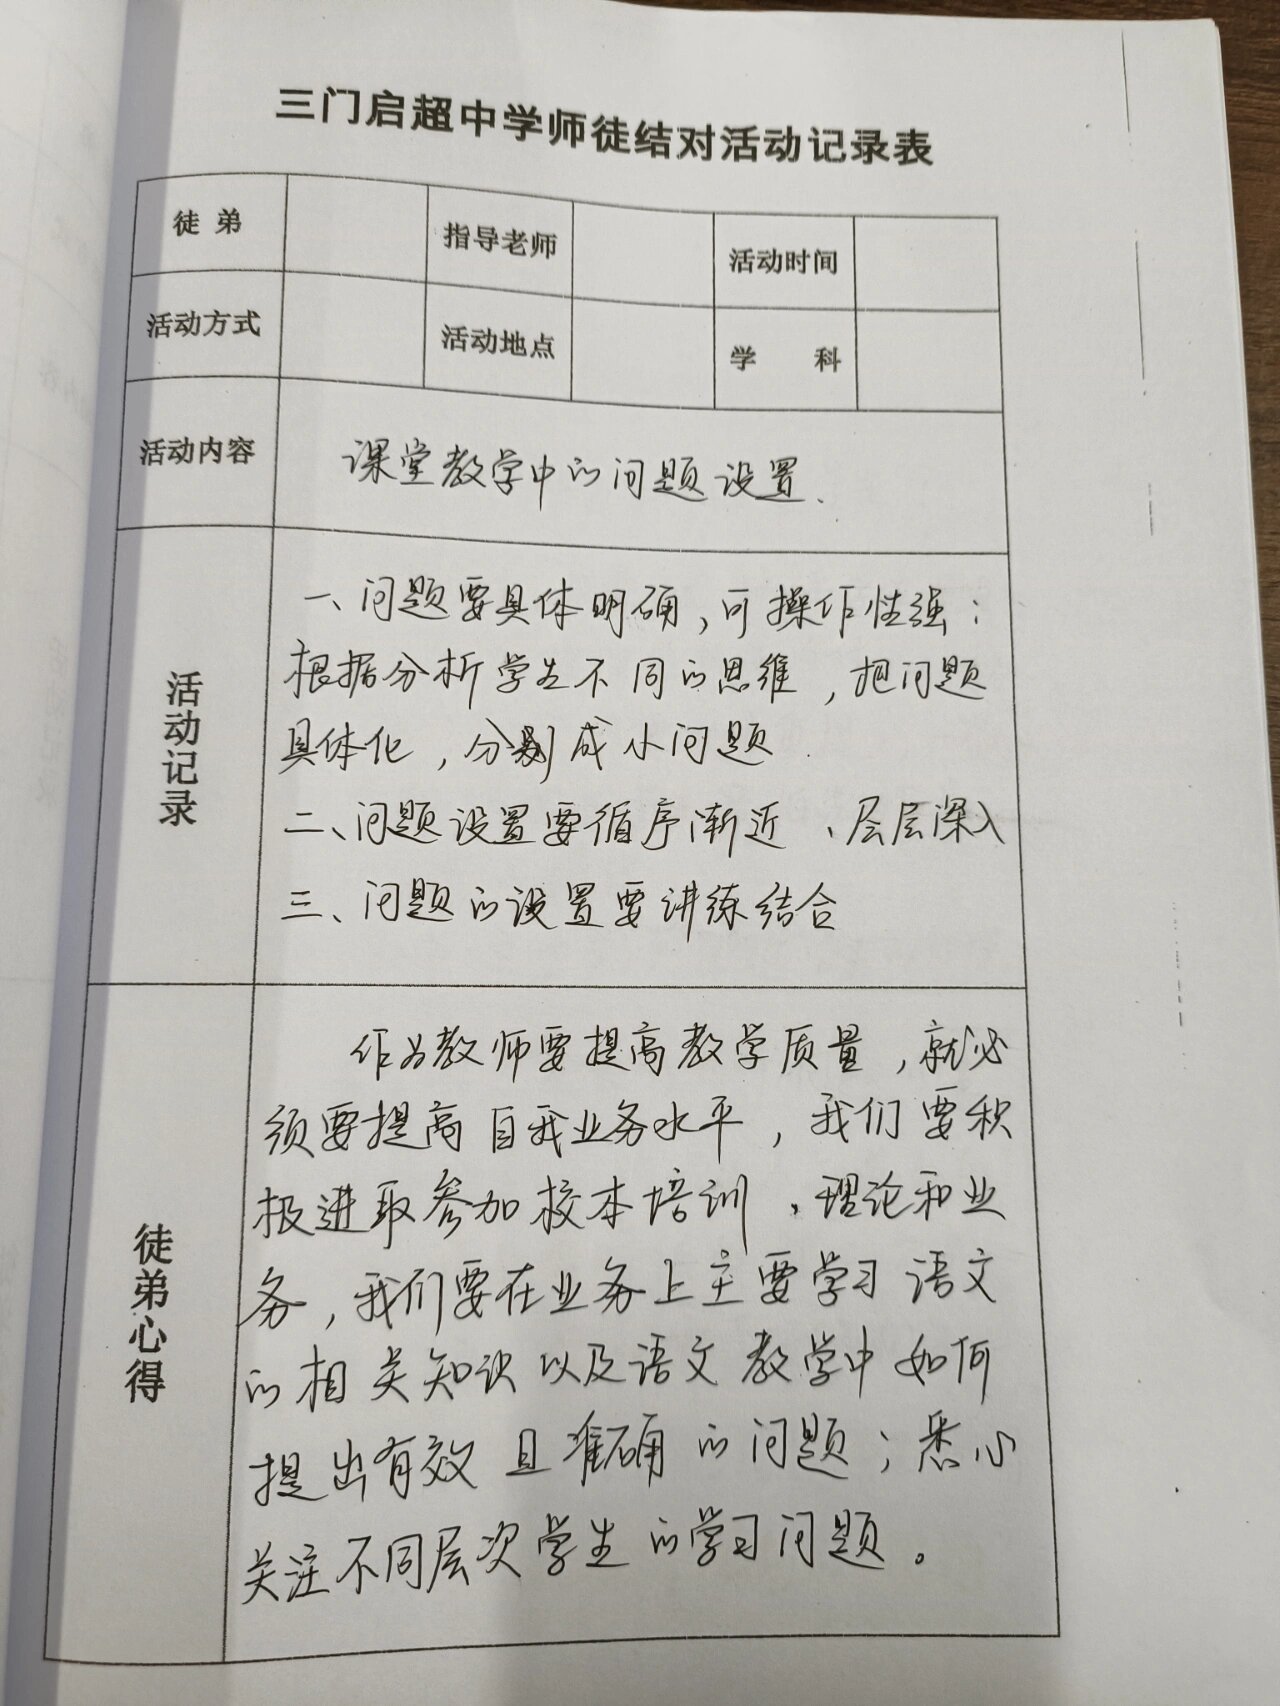 三门启超中学师徒结对活动记录表
徒弟 指导老师 活动时间
活动方式 活动地点 学科
活动内容 课堂教学中的问题设置.
活动记录
一、问题要具体明确，可操作性强：
根据分析学生不同的思维，把问题
具体化，分割成小问题.
二、问题设置要循序渐近、层层深入
三、问题的设置要讲练结合
徒弟心得
作为教师要提高教学质量，就必
须要提高自我业务水平，我们要积
极进取参加校本培训、理论和业
务，我们要在业务上主要学习语文
的相关知识以及语文教学中如何
提出有效且准确的问题；悉心
关注不同层次学生的学习问题。